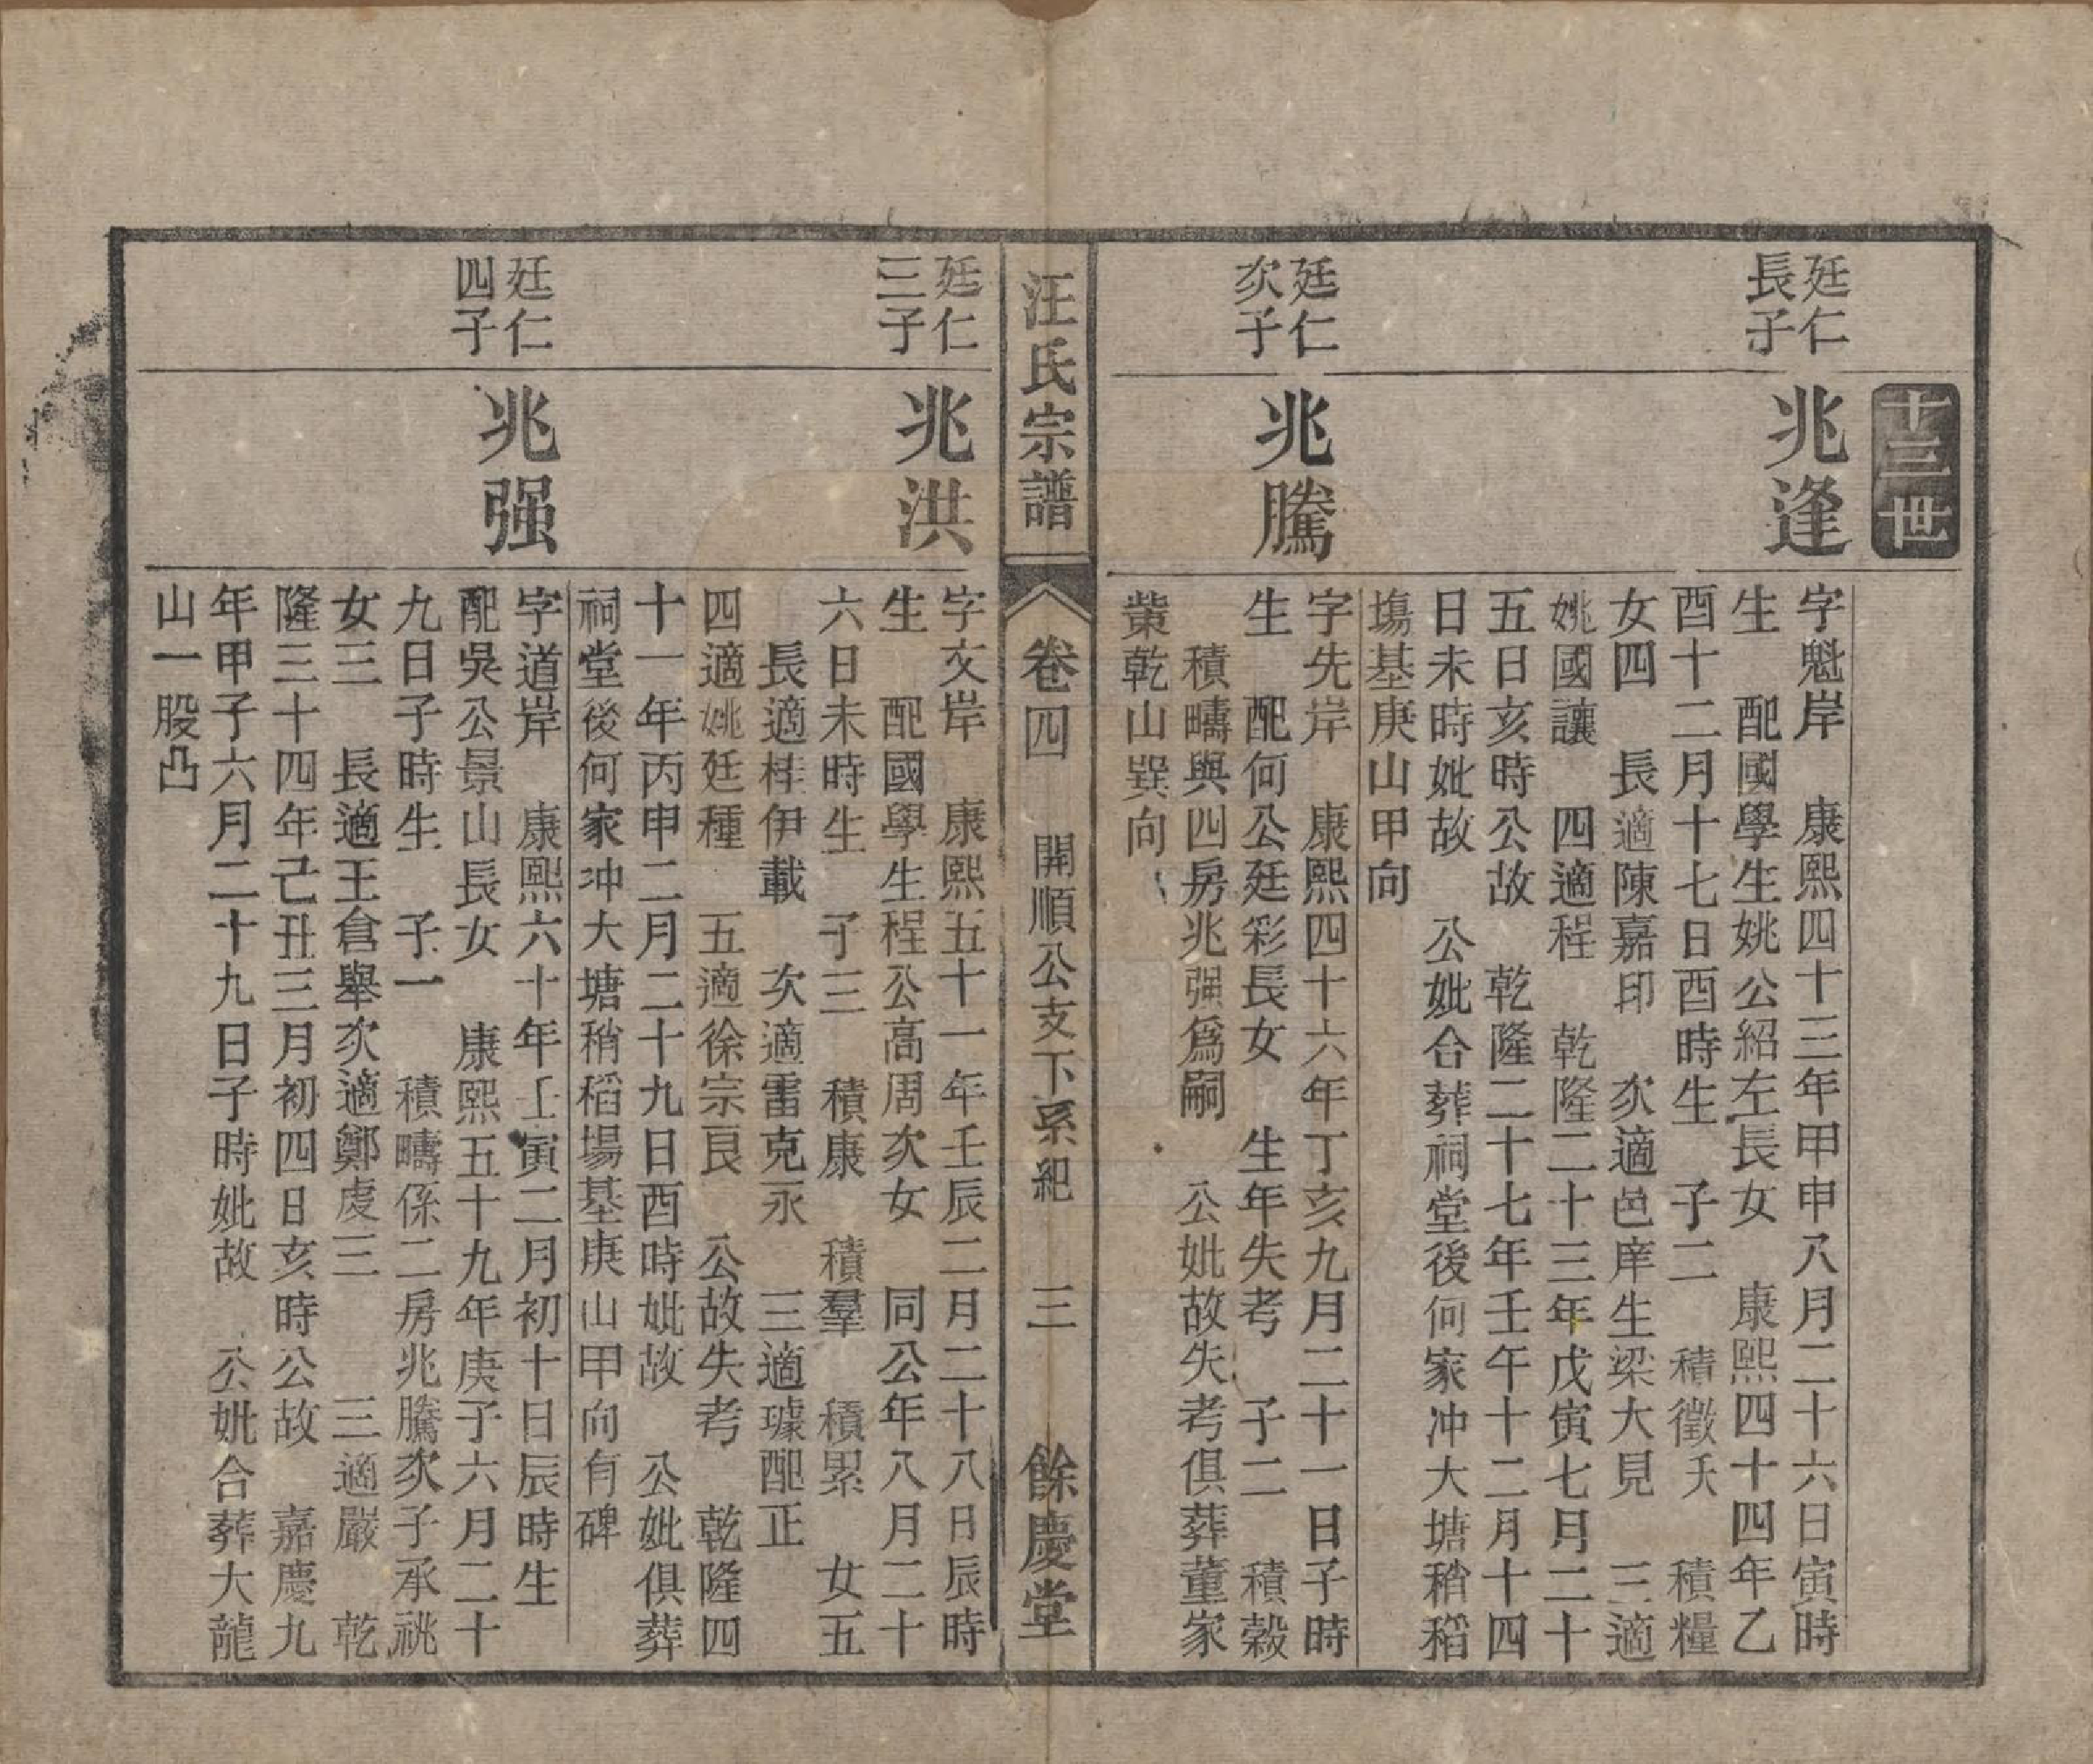 十三世
廷仁
長子
兆逢
字魁岸　康熙四十三年甲申八月二十六日寅時
生　配國學生姚公紹左長女　康熙四十四年乙
酉十二月十七日酉時生　子二　積徵夭　積糧
女四　長適陳嘉印　次適邑庠生梁大見　三適
姚國讓　四適程　乾隆二十三年戊寅七月二十
五日亥時公故　乾隆二十七年壬午十二月十四
日未時妣故　公妣合葬祠堂後何家冲大塘稍稻
塲基庚山甲向
廷仁
次子
兆騰
字先岸　康熙四十六年丁亥九月二十一日子時
生　配何公廷彩長女　生年失考　子二　積穀
積疇與四房兆强爲嗣　公妣故失考俱葬董家
藂乾山巽向
汪氏宗譜
卷四　開順公支下系紀　三　餘慶堂
廷仁
三子
兆洪
字文岸　康熙五十一年壬辰二月二十八日辰時
生　配國學生程公高周次女　同公年八月二十
六日未時生　子三　積康　積羣　積累　女五
長適桂伊載　次適雷克永　三適璩配正
四適姚廷種　五適徐宗良　公故失考　乾隆四
十一年丙申二月二十九日酉時妣故　公妣俱葬
祠堂後何家冲大塘稍稻場基庚山甲向有碑
廷仁
四子
兆强
字道岸　康熙六十年壬寅二月初十日辰時生
配吳公景山長女　康熙五十九年庚子六月二十
九日子時生　子一　積疇係二房兆騰次子承祧
女三　長適王倉舉次適鄭虔三　三適嚴　乾
隆三十四年己丑三月初四日亥時公故　嘉慶九
年甲子六月二十九日子時妣故　公妣合葬大龍
山一股凸